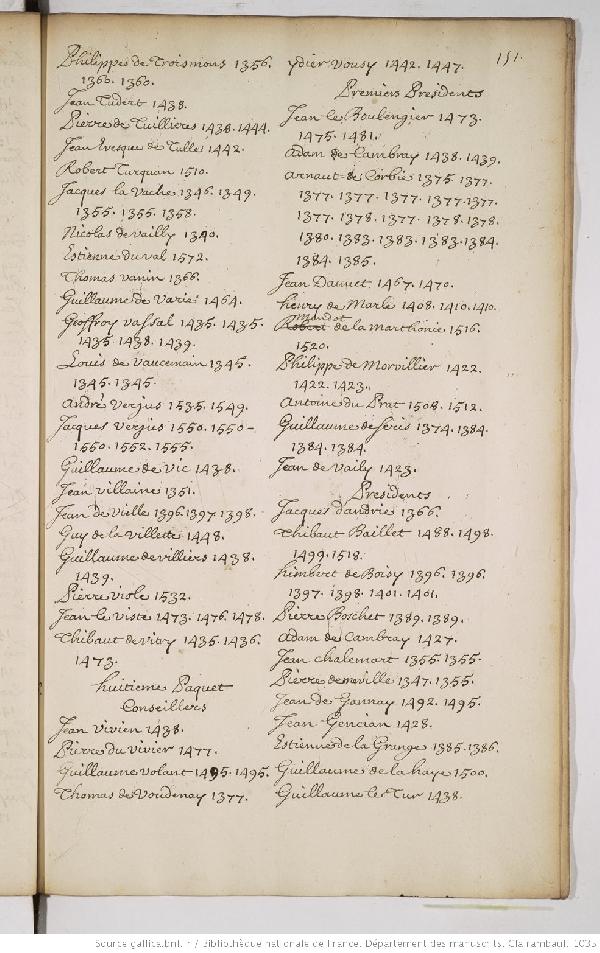 151.
Philippes de Troismons 1356.
1360. 1360.
Jean Tudert 1438.
Pierre de Tuillieres 1438. 1444.
Jean Evesque de Tulles 1442.
Robert Turquan 1510.
Jacques la Vache 1346. 1349.
1355. 1355. 1358.
Nicolas de vailly 1390.
Estienne du val 1572.
Thomas vanin 1366.
Guillaume de Varie 1464.
Geoffroy vassal 1435. 1435.
1435. 1438. 1439.
Louis de Vaucemain 1345.
1345. 1345.
André Verjus 1535. 1549.
Jacques Verjus 1550. 1550-
1550. 1552. 1555.
Guillaume de Vic 1438.
Jean villaine 1351.
Jean de Vielle 1396. 1397. 1398.
Guy de la Villette 1448.
Guillaume de villiers 1438.
1439.
Pierre viole 1532.
Jean le Viste 1473. 1476. 1478.
Thibaut de vitry 1435. 1436.
1473.
huitieme Paquet
Conseillers
Jean Vivien 1438.
Pierre du vivier 1477.
Guillaume volant 1495. 1495.
Thomas de Voudenay 1377.
ydier Vousy 1442. 1447.
Premiers Presidents
Jean le Boulengier 1473.
1475. 1481.
Adam de Cambray 1438. 1439.
Arnaut de Corbie 1375. 1377.
1377. 1377. 1377. 1377. 1377.
1377. 1378. 1377. 1378. 1378.
1380. 1383. 1383. 1383. 1384.
1384. 1385.
Jean Dauvet 1467. 1470.
henry de Marle 1408. 1410. 1410.
mondot
Robert de la Marthonie 1516.
1520.
Philippe de Morvillier 1422.
1422. 1423.
Antoine du Prat 1508. 1512.
Guillaume de Seris 1374. 1384.
1384. 1384.
Jean de Vaily 1423.
Presidents
Jacques dandrie 1366.
Thibaut Baillet 1488. 1498.
1499. 1518.
himbert de Boisy 1396. 1396.
1397. 1398. 1401. 1401.
Pierre Boschet 1389. 1389.
Adam de Cambray 1427.
Jean Chalemart 1355. 1355.
Pierre demeville 1347. 1355.
Jean de Gannay 1492. 1495.
Jean Gencian 1428.
Estienne de la Grange 1385. 1386.
Guillaume de la haye 1500.
Guillaume le Tur 1438.
Source gallica.bnf.fr / Bibliothèque nationale de France. Département des manuscrits. Clairambault. 1035